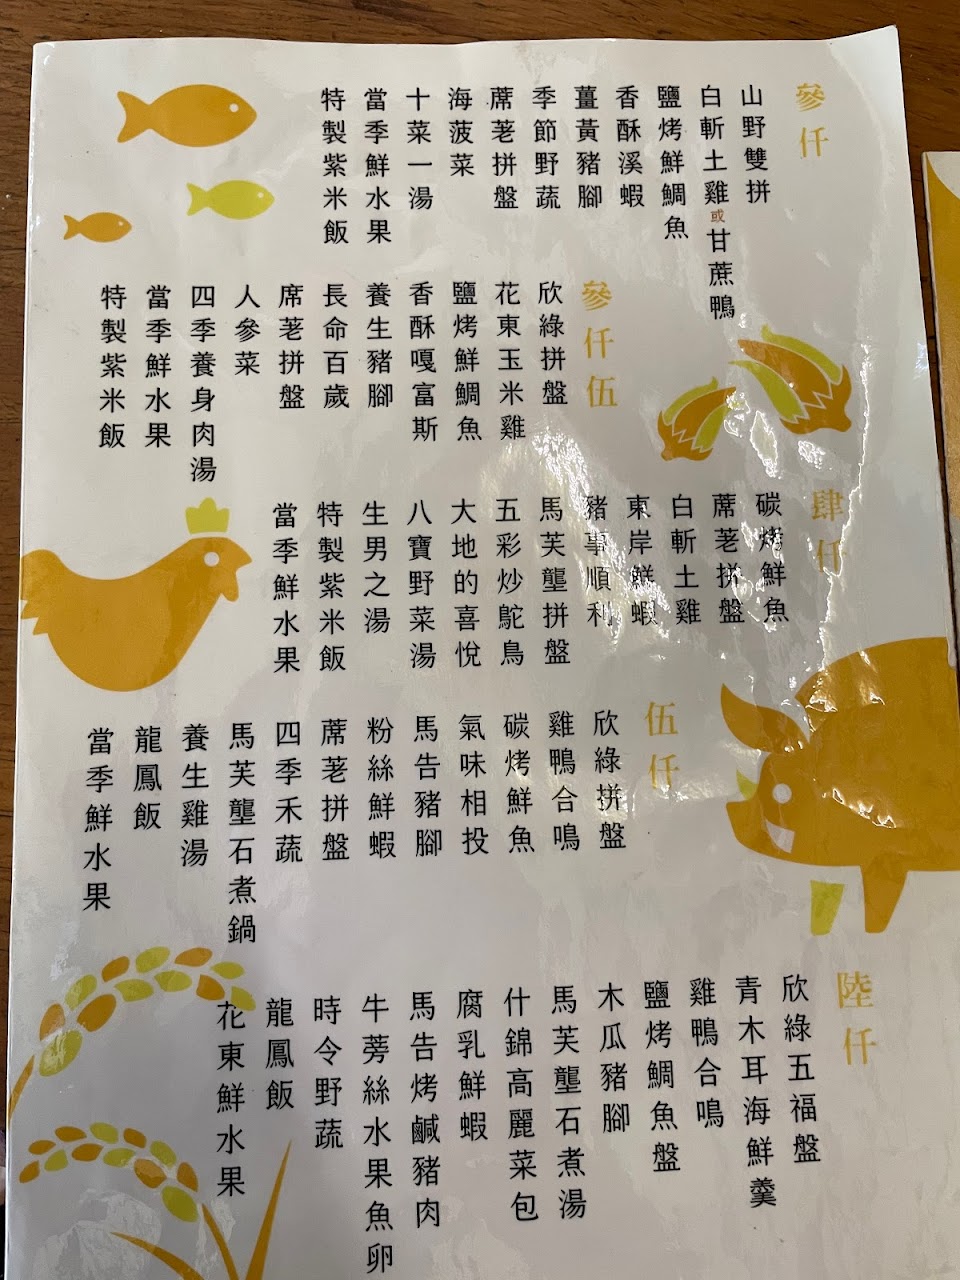 參仟
山野雙拼
白斬土雞或甘蔗鴨
鹽烤鮮鯛魚
香酥溪蝦
薑黃豬腳
季節野蔬
蓆荖拼盤
海菠菜
十菜一湯
當季鮮水果
特製紫米飯
參仟伍
欣綠拼盤
花東玉米雞
鹽烤鮮鯛魚
香酥嘎富斯
養生豬腳
長命百歲
席荖拼盤
人參菜
四季養身肉湯
當季鮮水果
特製紫米飯
肆仟
碳烤鮮魚
蓆荖拼盤
白斬土雞
東岸鮮蝦
豬事順利
馬芙壟拼盤
五彩炒鴕鳥
大地的喜悅
八寶野菜湯
生男之湯
特製紫米飯
當季鮮水果
伍仟
欣綠拼盤
雞鴨合鳴
碳烤鮮魚
氣味相投
馬告豬腳
粉絲鮮蝦
蓆荖拼盤
四季禾蔬
馬芙壟石煮鍋
養生雞湯
龍鳳飯
當季鮮水果
陸仟
欣綠五福盤
青木耳海鮮羹
雞鴨合鳴
鹽烤鯛魚盤
木瓜豬腳
馬芙壟石煮湯
什錦高麗菜包
腐乳鮮蝦
馬告烤鹹豬肉
牛蒡絲水果魚卵
時令野蔬
龍鳳飯
花東鮮水果